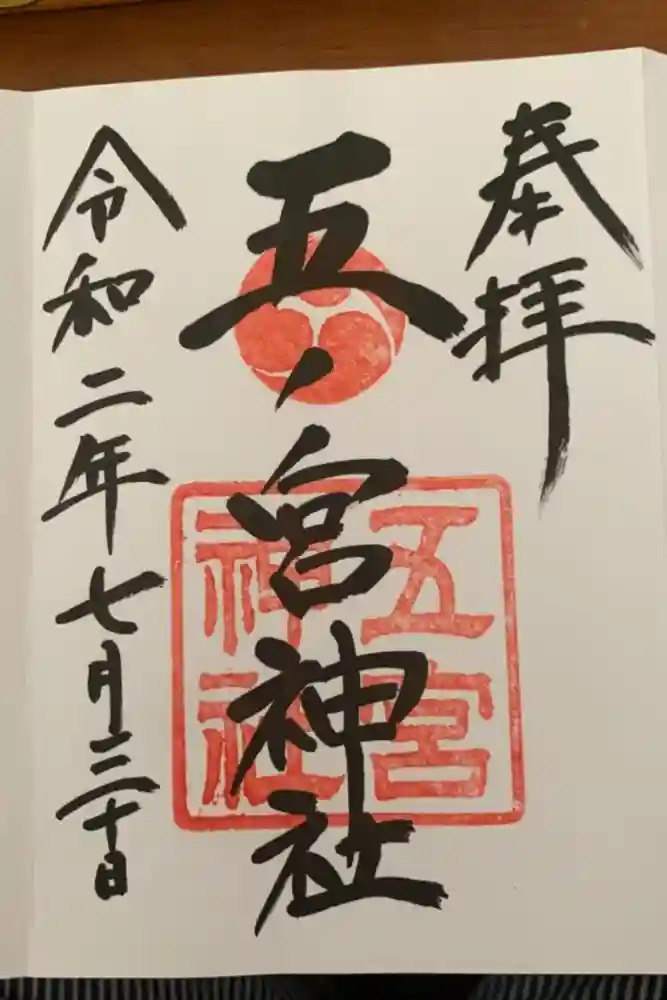 奉拝
五ノ宮神社
五宮
神社
令和二年七月三十日